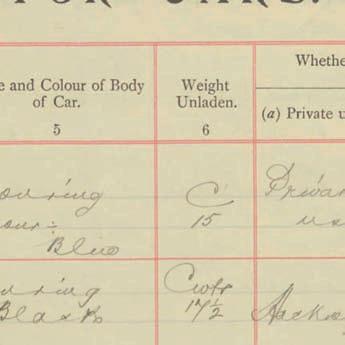 FOR CARS.
e and Colour of Body
of Car.
5
Weight
Unladen.
6
Whethe
(a) Private u
ouring
our :
Blue
C
15
Priva
us
uring
Black
Cwts
17½
Hackn